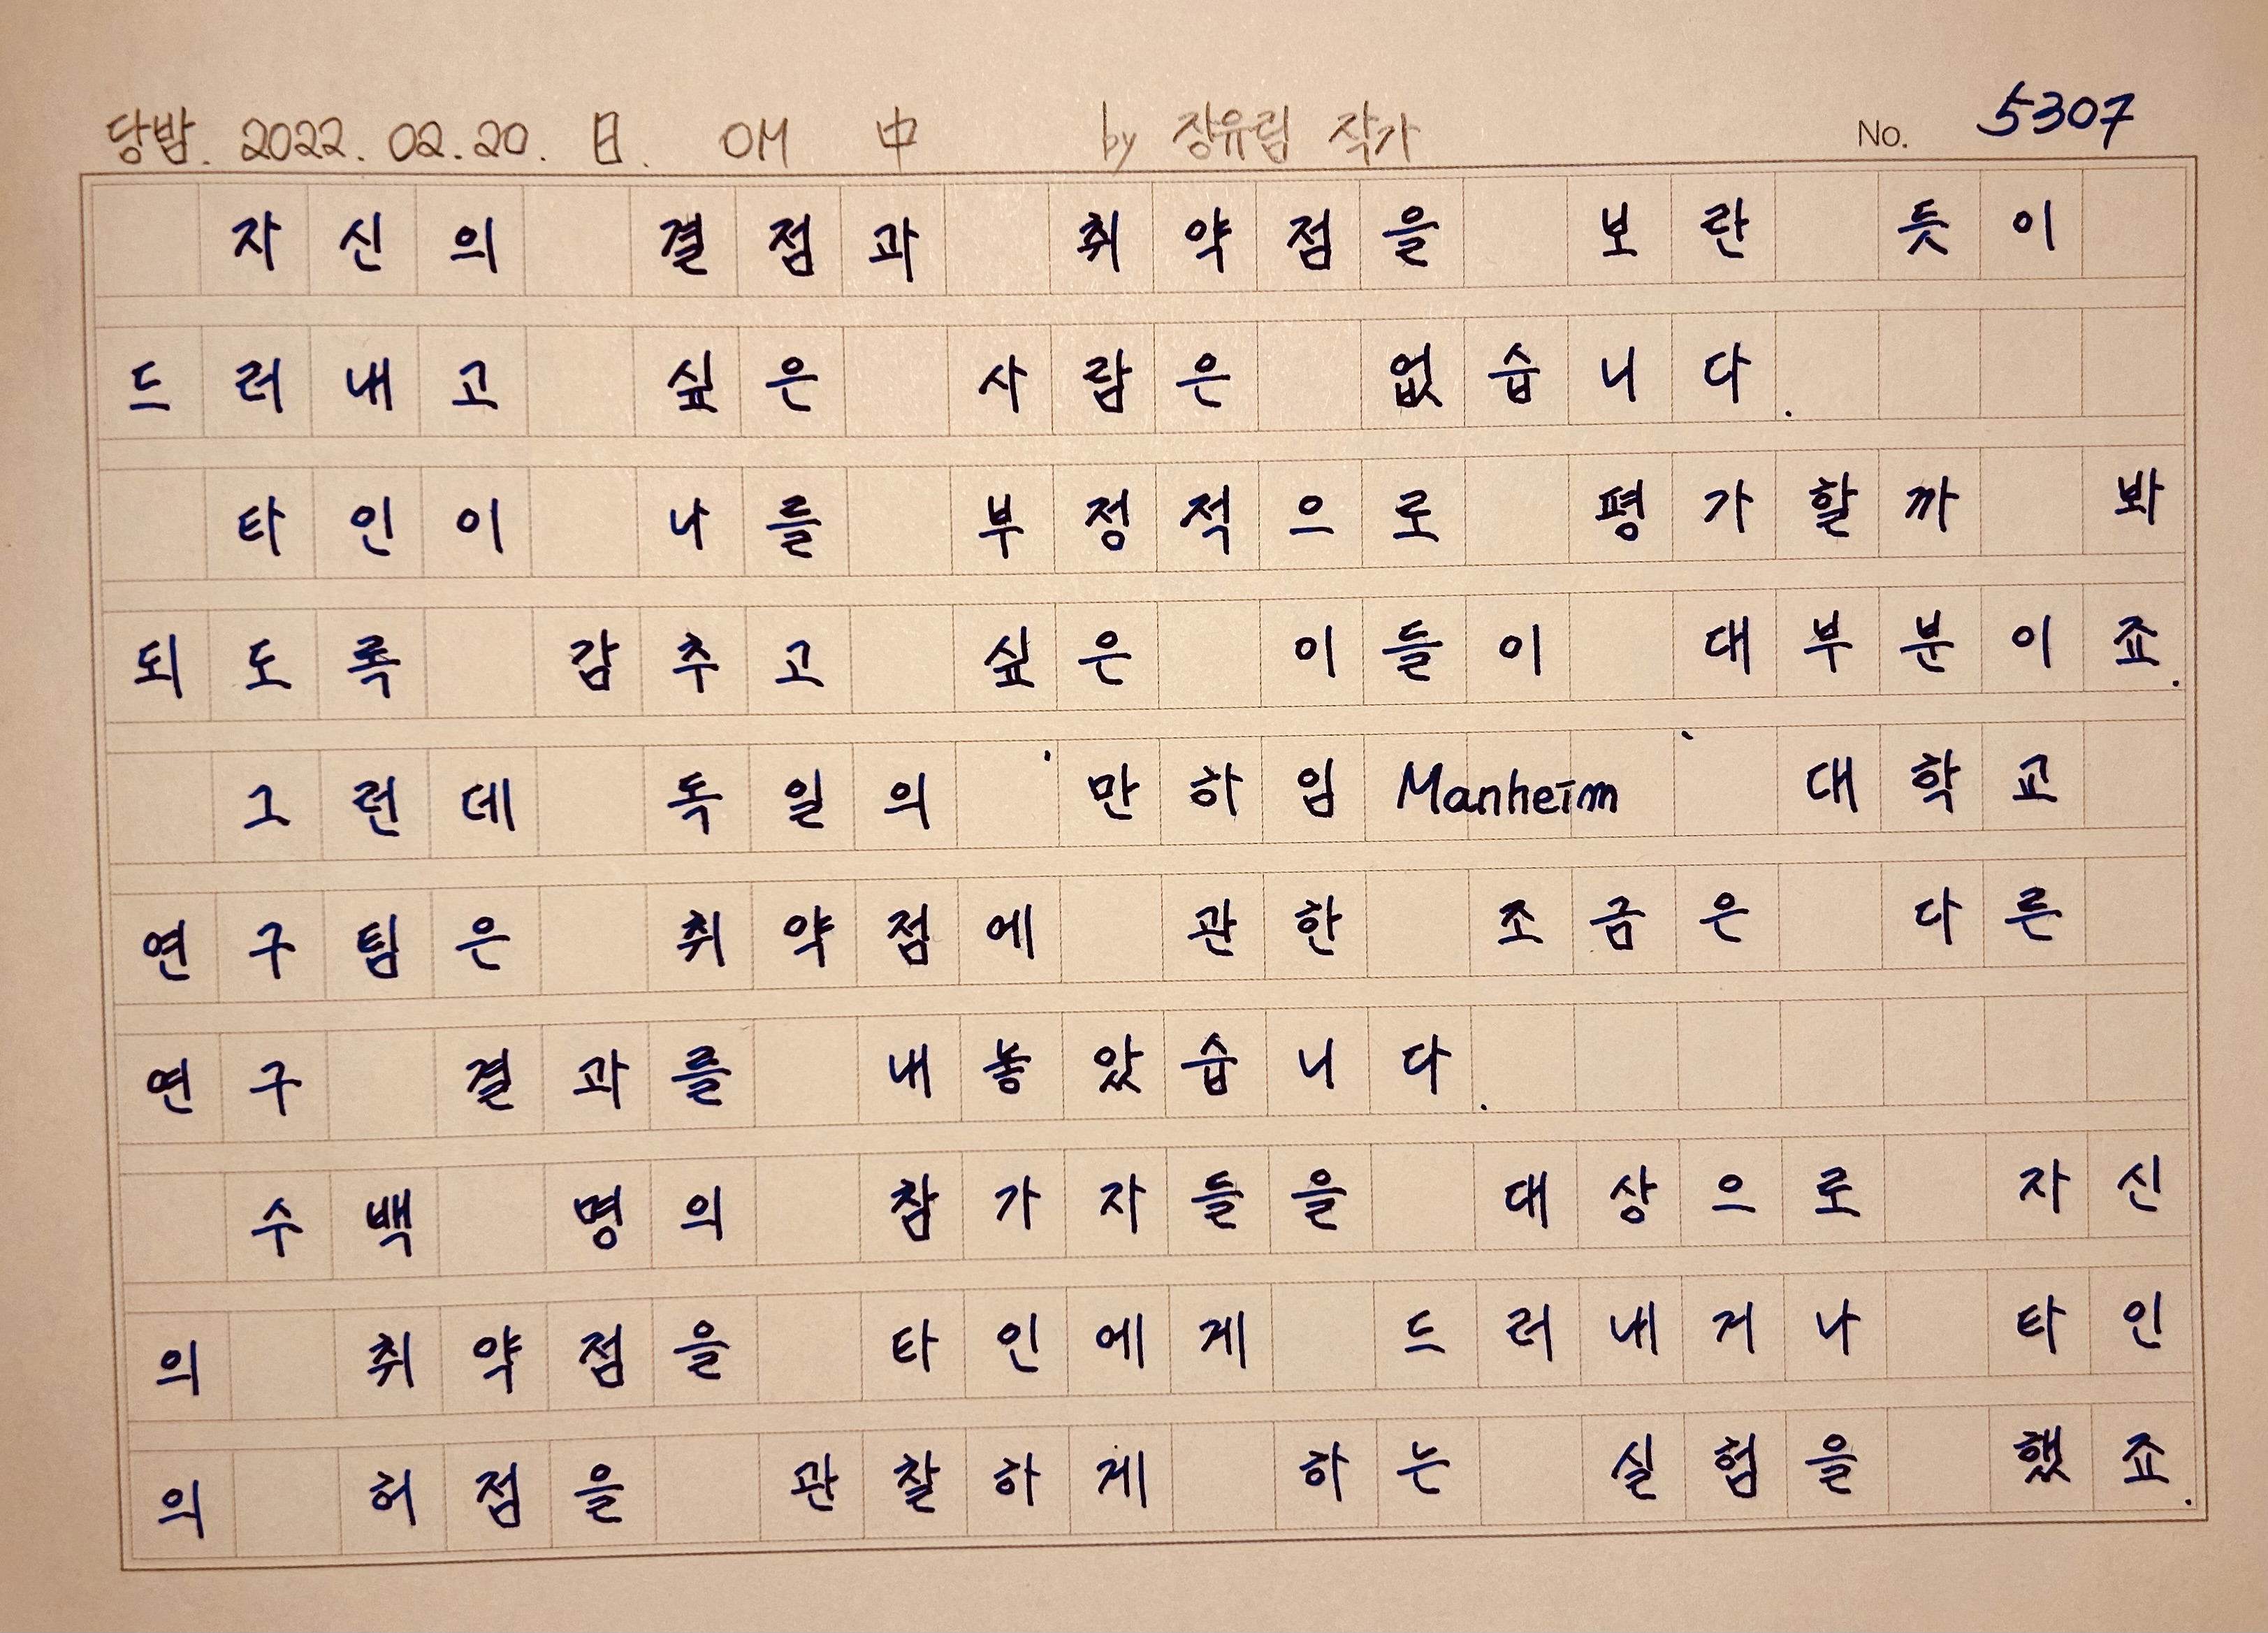 당밤. 2022. 02. 20. 日. OH 中 by 장유림 작가 No. 5307
자신의 결점과 취약점을 보란 듯이
드러내고 싶은 사람은 없습니다.
타인이 나를 부정적으로 평가할까 봐
되도록 감추고 싶은 이들이 대부분이죠.
그런데 독일의 '만하임 Manheim' 대학교
연구팀은 취약점에 관한 조금은 다른
연구 결과를 내놓았습니다.
수백 명의 참가자들을 대상으로 자신
의 취약점을 타인에게 드러내거나 타인
의 허점을 관찰하게 하는 실험을 했죠.